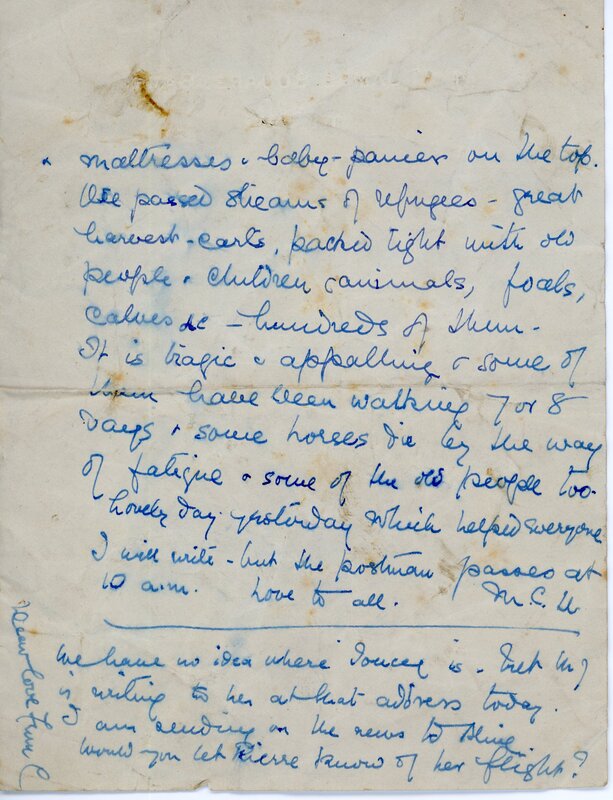 & mattresses & baby-panier on the top.
We passed streams of refugees - great
harvest-carts, packed tight with old
people & children & animals, foals,
calves &c - hundreds of them -
It is tragic & appalling & some of
them have been walking 7 or 8
days & some horses die by the way
of fatigue & some of the old people too -
Lovely day yesterday which helped everyone
I will write - but the postman passes at
10 a.m. Love to all. M.C.U
We have no idea where is -
is writing to her at that address today.
I am sending on the news to
Would you let Pierre know of her flight?
love from